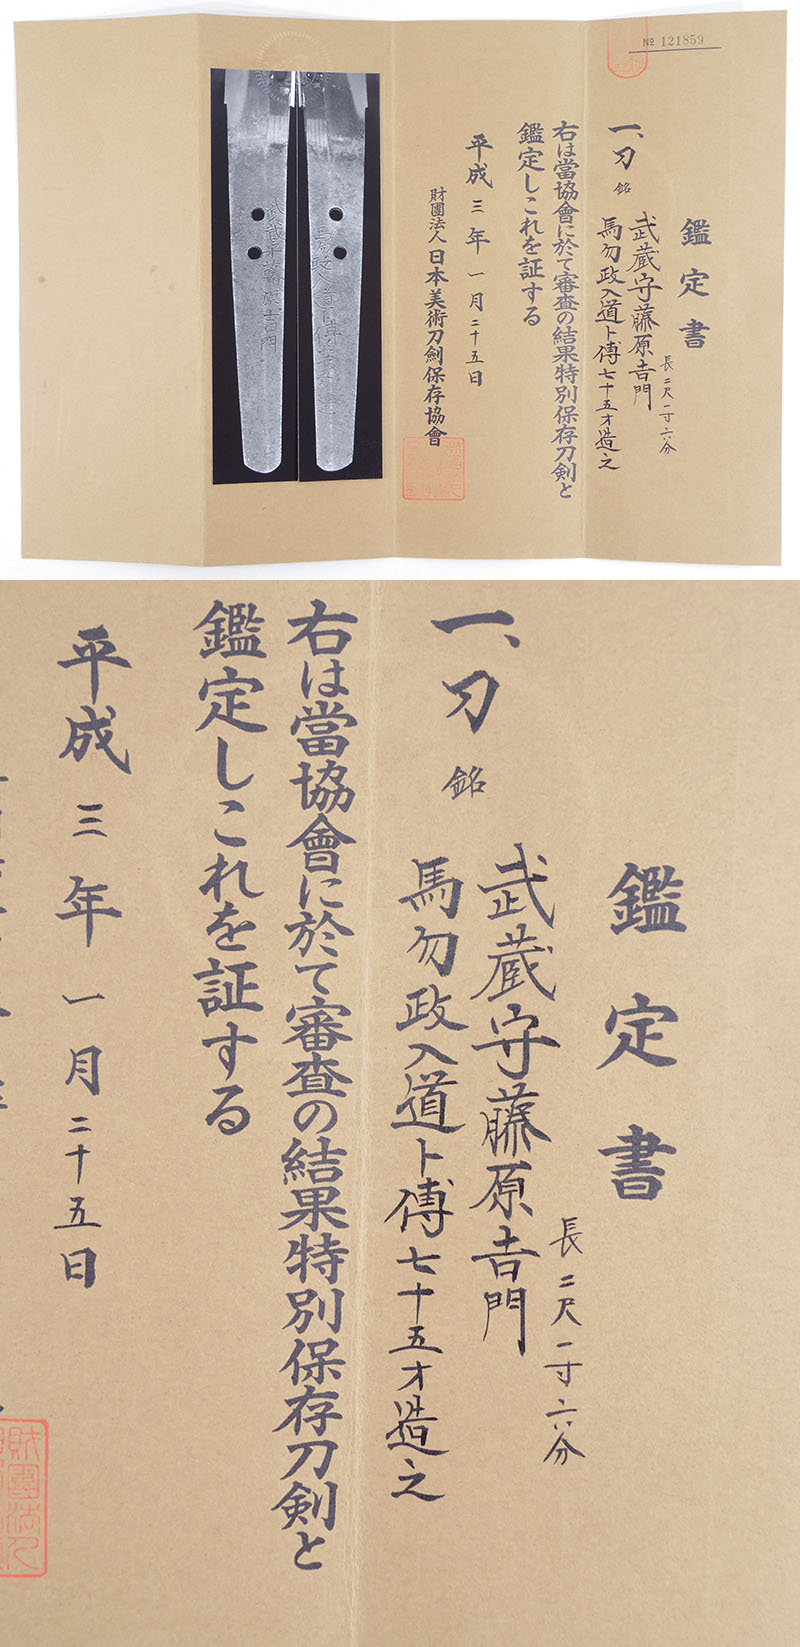 № 121859
鑑定書
一、刀 銘
武蔵守藤原吉門
長二尺一寸六分
馬勿政入道ト傳七十五才造之
右は當協會に於て審査の結果特別保存刀剣と
鑑定しこれを証する
平成三年一月二十五日
財團法人日本美術刀剣保存協會
鑑定書
一、刀 銘
武蔵守藤原吉門
長二尺一寸六分
馬勿政入道ト傳七十五才造之
右は當協會に於て審査の結果特別保存刀剣と
鑑定しこれを証する
平成三年一月二十五日
財團法人